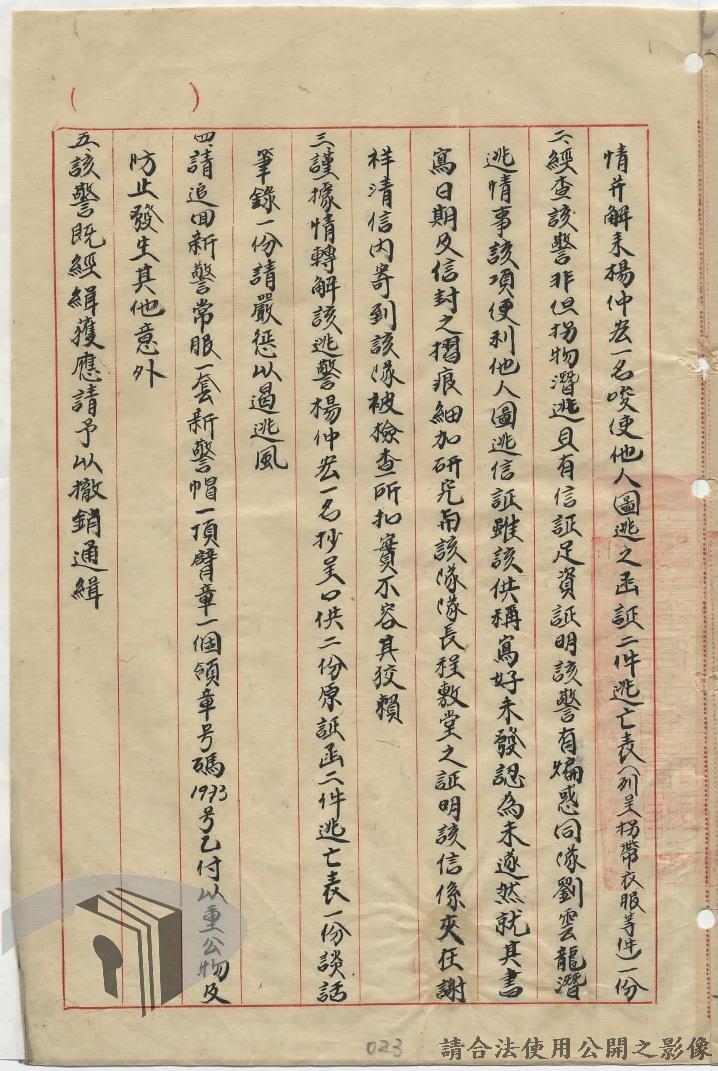 情并解来楊仲宏一名唆使他人圖逃之函証二件逃亡表(列呈拐帶衣服等件)一份
二、經查該警非但拐物潛逃且有信証足資証明該警有煽惑同隊劉雲龍潛
逃情事該項便利他人圖逃信証雖該供稱寫好未發認為未遂然就其書
寫日期及信封之摺痕細加研究與該隊隊長程敷堂之証明該信係夾在謝
祥清信內寄到該隊被檢查所扣實不容其狡賴
三、謹據情轉解該逃警楊仲宏一名抄呈口供二份原証函二件逃亡表一份談話
筆錄一份請嚴懲以遏逃風
四、請追回新警常服一套新警帽一頂臂章一個領章号碼1973号乙付以重公物及
防止發生其他意外
五、該警既經緝獲應請予以撤銷通緝
023
請合法使用公開之影像